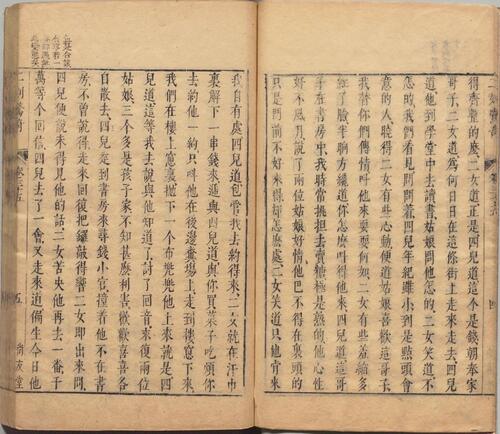 得齊整的麽二女道正是四兒道這个是錢朝奉家
哥子二女道爲何日日在這條街上走來走去四兒
道他到學堂中去讀書姑娘問他怎的二女笑道不
怎的我們看見問問着四兒年紀雖小到是點頭會
意的人曉得二女有些心動便道姑娘喜歡這哥子
我替你們傳情叫他來耍耍何如二女有些羞縮多
紅了臉半晌方纔道你怎麽叫得他來四兒道這哥
子在書房中我時常挑担去賣糖極是熟的他心性
好不風月說了兩位姑娘好情他巴不得在裏頭的
只是門前不好來得却怎麽處二女笑道只他肯來
四
我自有處四兒道包管我去約得來二女就在汗巾
裏解下一串錢來遞與四兒道與你買菓子吃煩你
去約他一約只叫他在後邊糞塲上走到樓窓下來
我們在樓上窓裏抛下一个布兜兜他上來就是四
兒道這等我去說與他知道了討了回音來復兩位
姑娘三个多是孩子家不知甚麽利害歡歡喜喜各
自散去四兒走到書房來尋錢小官撞着他不在書
房不曾說得走來回復把鑼敲得響二女即出來問
四兒便說未得見他的話二女苦央他再去一番千
萬等个回信四兒去了一會又走來道偏生今日他
二刻驚奇 卷三十五 五 尚友堂